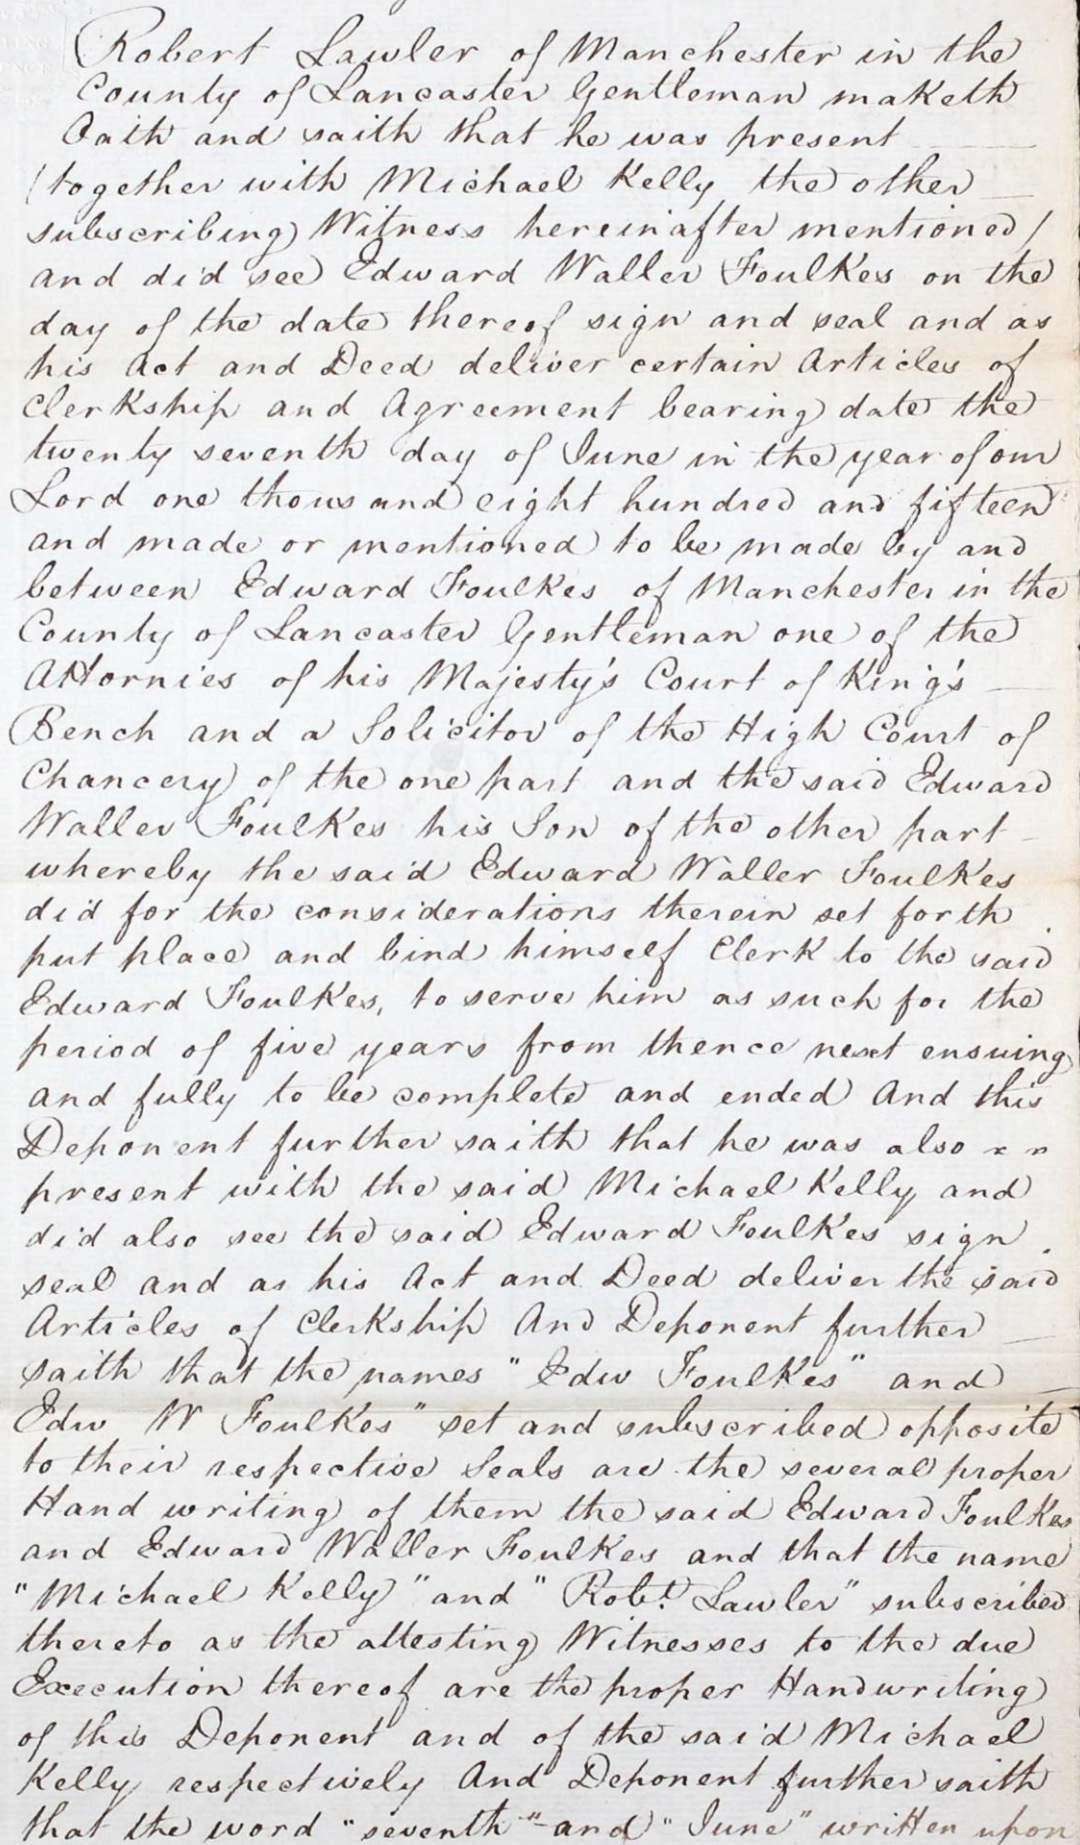 Robert Lawler of Manchester in the
County of Lancaster Gentleman maketh
Oath and saith that he was present
(together with Michael Kelly the other
subscribing Witness hereinafter mentioned)
and did see Edward Waller Foulkes on the
day of the date thereof sign and seal and as
his Act and Deed deliver certain Articles of
Clerkship and Agreement bearing date the
twenty seventh day of June in the year of our
Lord one thousand eight hundred and fifteen
and made or mentioned to be made by and
between Edward Foulkes of Manchester in the
County of Lancaster Gentleman one of the
Attornies of his Majesty's Court of King's
Bench and a Solicitor of the High Court of
Chancery of the one part and the said Edward
Waller Foulkes his Son of the other part
whereby the said Edward Waller Foulkes
did for the considerations therein set forth
put place and bind himself Clerk to the said
Edward Foulkes, to serve him as such for the
period of five years from thence next ensuing
and fully to be complete and ended And this
Deponent further saith that he was also
present with the said Michael Kelly and
did also see the said Edward Foulkes sign
seal and as his Act and Deed deliver the said
Articles of Clerkship And Deponent further
saith that the names "Edw Foulkes" and
Edw W Foulkes" set and subscribed opposite
to their respective Seals are the several proper
Hand writing of them the said Edward Foulkes
and Edward Waller Foulkes and that the name
"Michael Kelly" and "Robt. Lawler" subscribed
thereto as the attesting Witnesses to the due
Execution thereof are the proper Handwriting
of this Deponent and of the said Michael
Kelly respectively And Deponent further saith
that the word "seventh" and "June" written upon